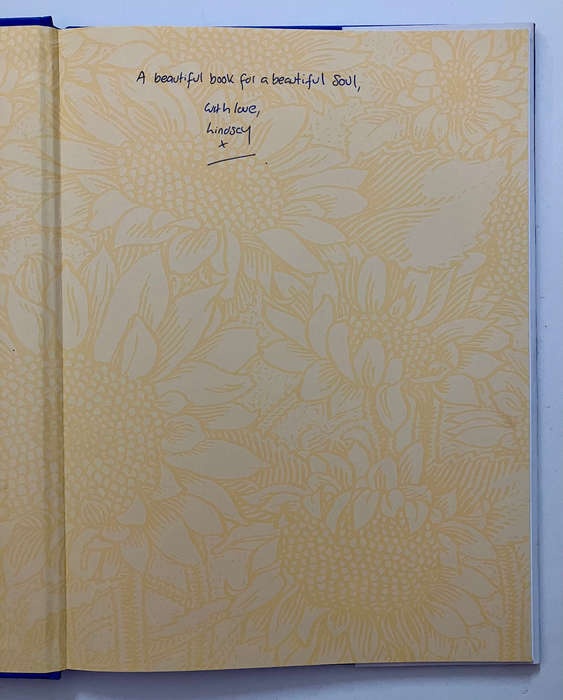 A beautiful book for a beautiful soul,
with love,
Lindsay
x